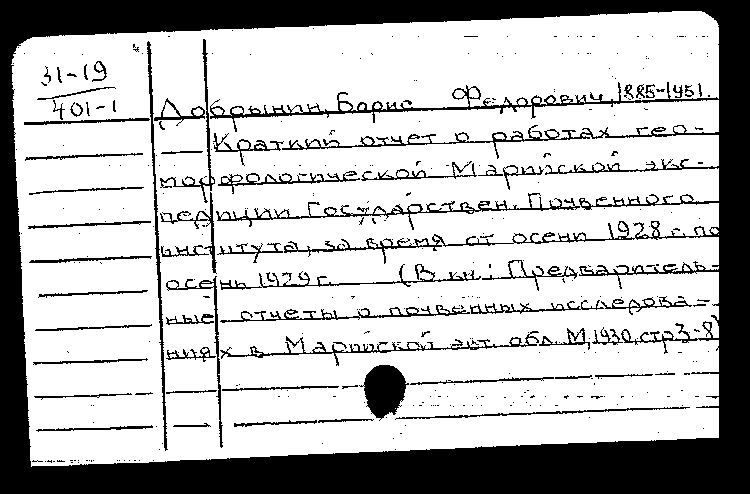 31-19
401-1
Добрынин, Борис Федорович, 1885-1951.
Краткий отчет о работах гео-
морфологической Марийской экс-
педиции Государствен. Почвенного
института, за время от осени 1928 г. по
осень 1929 г. (В кн.: Предваритель-
ные отчеты о почвенных исследова-
ниях в Марийской авт. обл. М, 1930, стр 3-8)